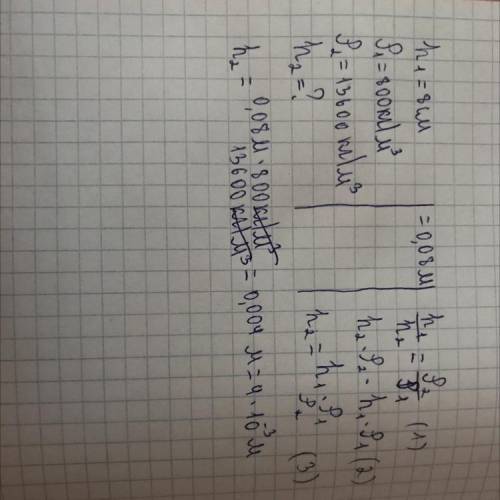 h₁ = 8 см = 0,08 м
ρ₁ = 800 кг/м³
ρ₂ = 13600 кг/м³
h₂ = ?
h₁/h₂ = ρ₂/ρ₁ (1)
h₂ · ρ₂ = h₁ · ρ₁ (2)
h₂ = h₁ · ρ₁/ρ₂ (3)
h₂ = 0,08 м · 800 кг/м³ / 13600 кг/м³ = 0,004 м = 4 · 10⁻³ м